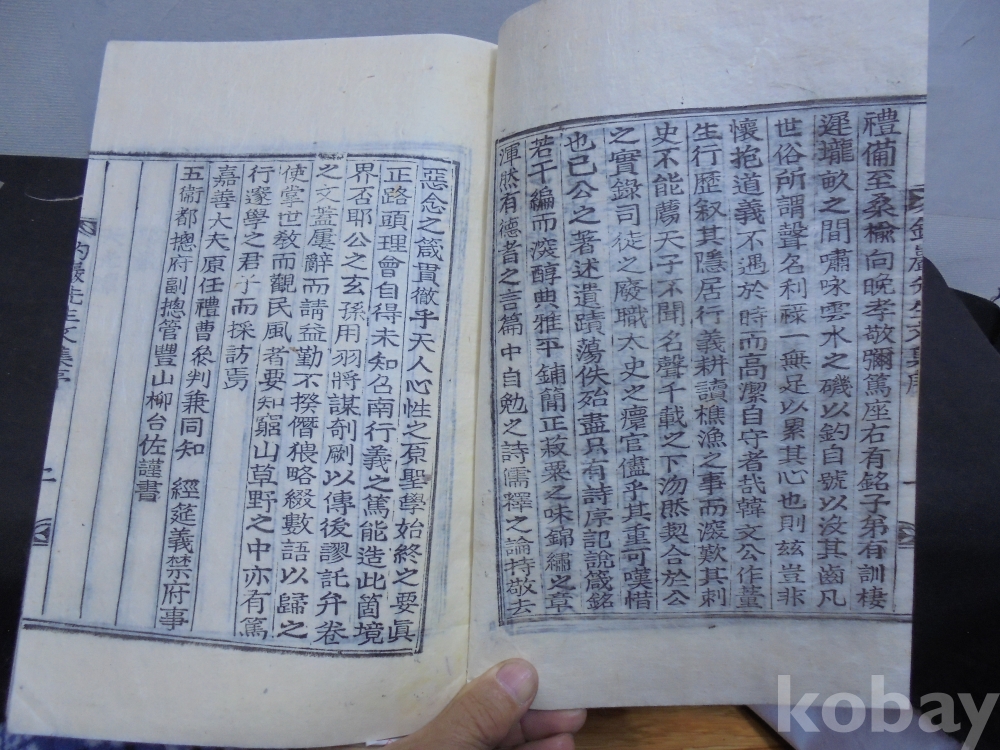 禮備至桑楡向晩孝敬彌篤座右有銘子第有訓棲
遲壠畝之間嘯咏雲水之磯以釣自號以沒其齒凡
世俗所謂聲名利祿一無足以累其心也則玆豈非
懷抱道義不遇於時而高潔自守者哉韓文公作董
生行歷叙其隱居行義耕讀樵漁之事而深歎其刺
史不能薦天子不聞名聲千載之下沕然契合於公
之實錄司徒之廢職大史之癏官儘乎其重可嘆惜
也已公之著述遺蹟蕩佚殆盡只有詩序記說箴銘
若干編而深醇典雅平鋪簡正菽粟之味錦繡之章
渾然有德者之言篇中自勉之詩儒釋之論持敬去
惡念之箴貫徹乎天人心性之原聖學始終之要眞
正路頭理會自得未知召南行義之篤能造此箇境
界否耶公之玄孫用羽將謀剞劂以傳後謬託弁卷
之文蓋屢辭而請益勤不揆僭猥略綴數語以歸之
使掌世敎而觀民風者要知窮山草野之中亦有篤
行邃學之君子而採訪焉
嘉善大夫原任禮曹參判兼同知 經筵義禁府事
五衛都摠府副摠管豐山柳台佐謹書
先生文集序
二
kobay